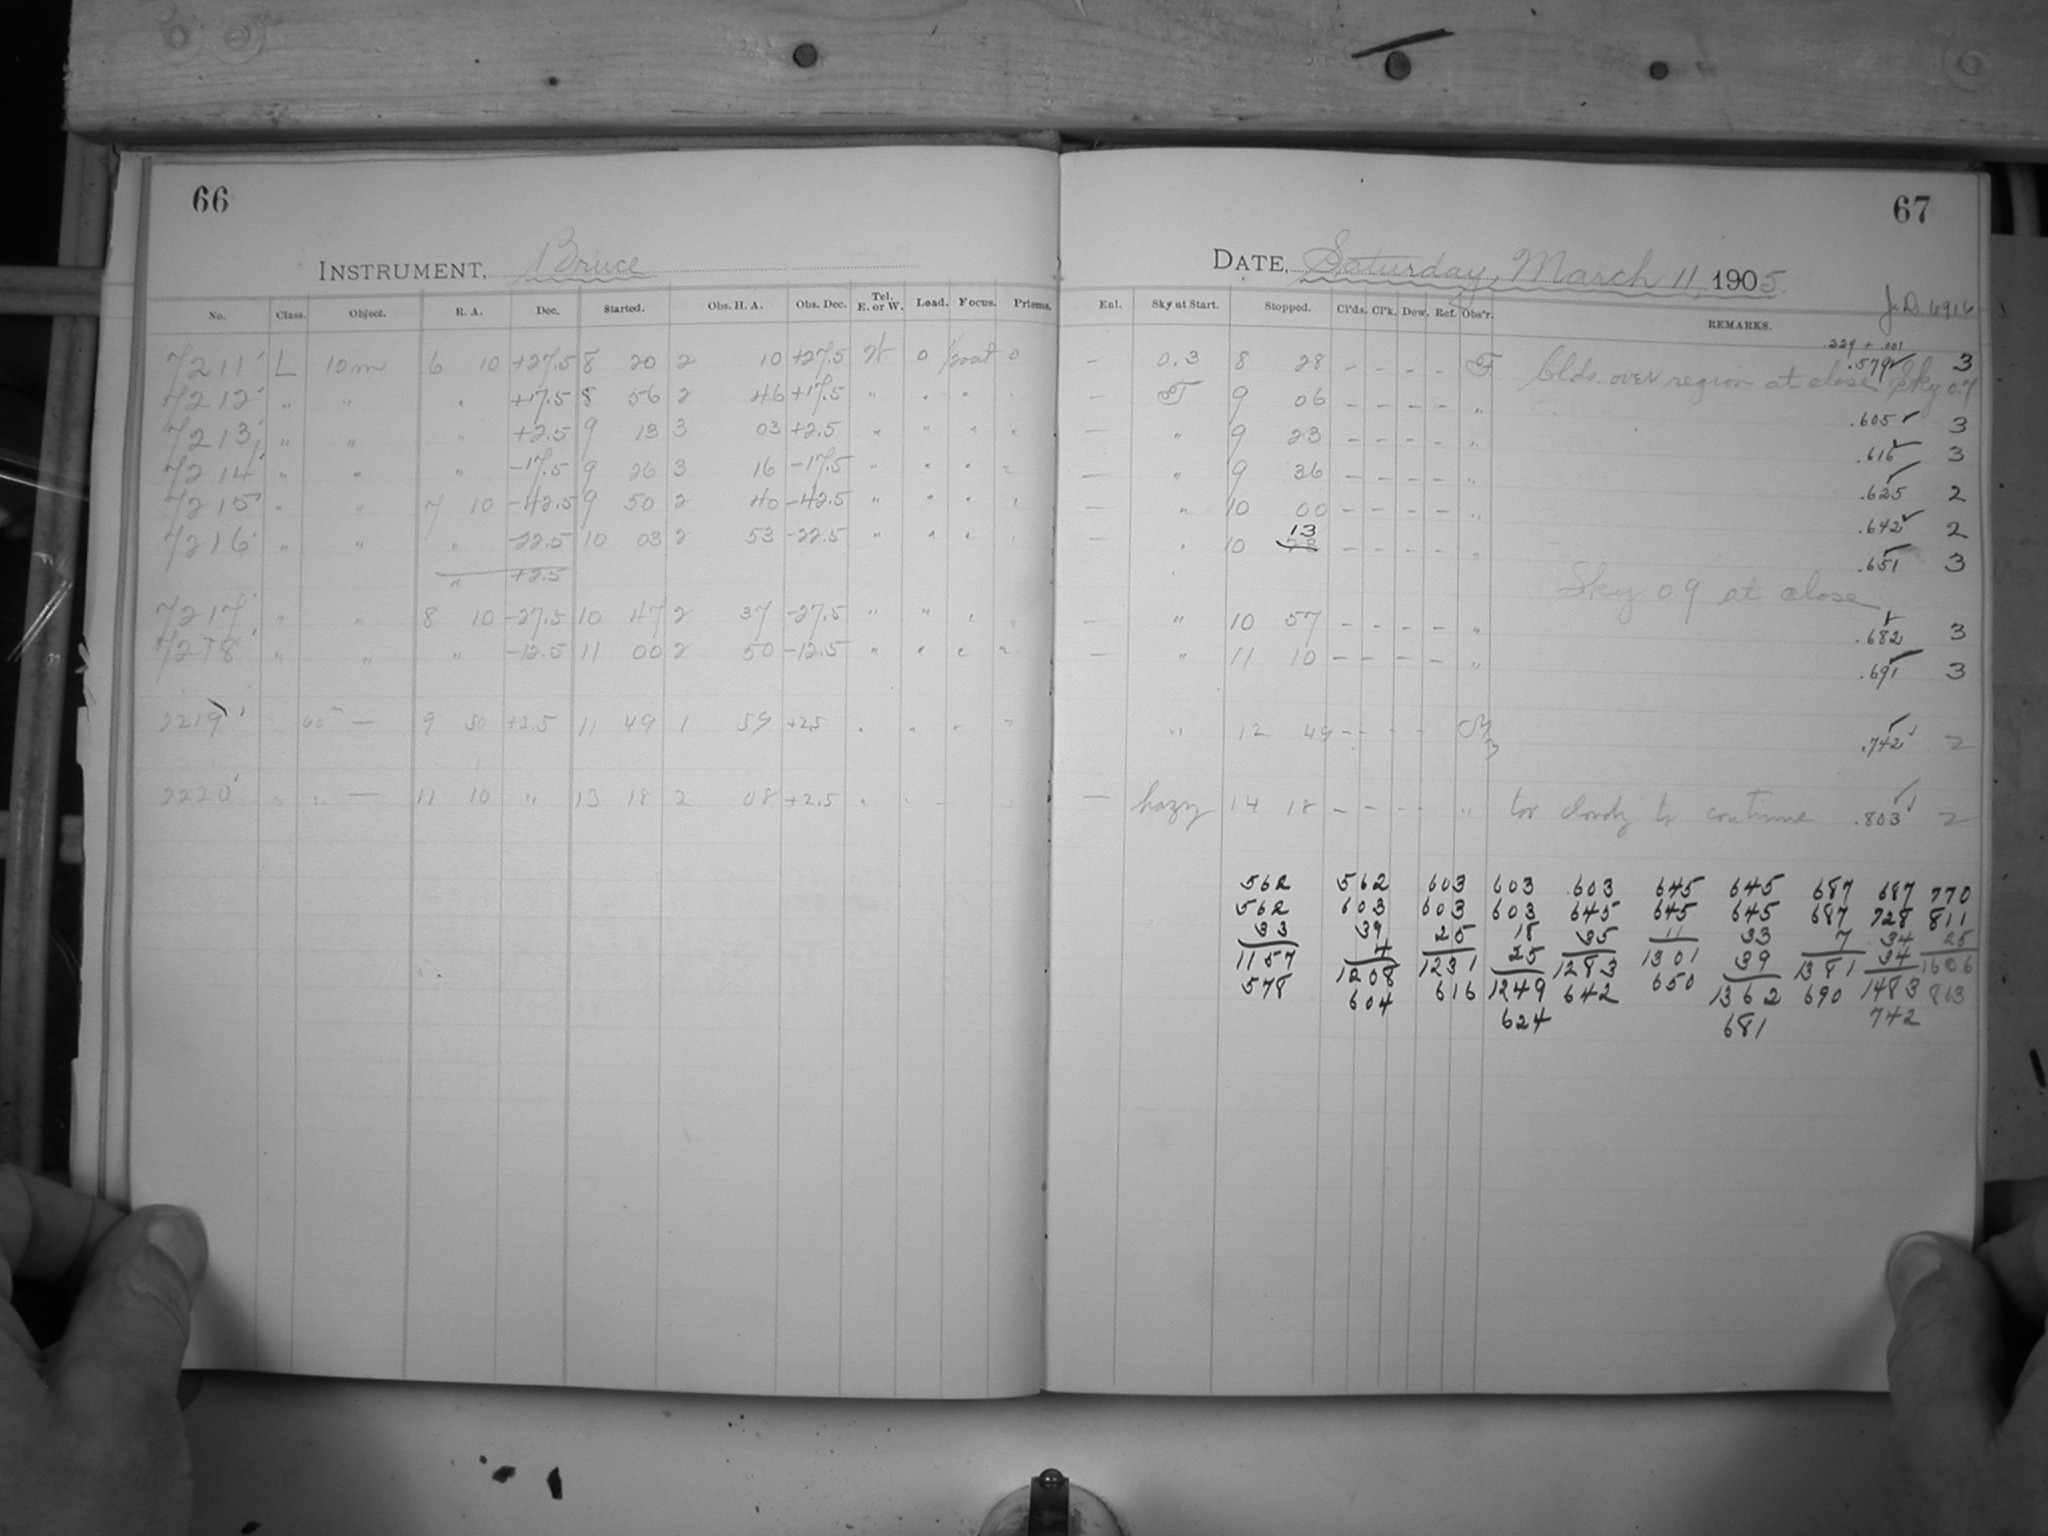 66
INSTRUMENT, Bruce
No. Class. Object. R. A. Dec. Started. Obs. H. A. Obs. Dec. Tel. E. or W. Lead. Focus. Prisms.
7211' L 10m 6 10 +27.5 8 20 2 10 +27.5 W 0 0
7212' " " " +17.5 8 56 2 46 +17.5 " " " "
7213' " " " +2.5 9 13 3 03 +2.5 " " " "
7214' " " " -17.5 9 26 3 16 -17.5 " " " "
7215' " " 7 10 -42.5 9 50 2 40 -42.5 " " " "
7216' " " " -22.5 10 03 2 53 -22.5 " " " "
" +2.5
7217' " " 8 10 -27.5 10 47 2 37 -27.5 " " " "
7218' " " " -12.5 11 00 2 50 -12.5 " " " "
7219' " 60m — 9 50 +2.5 11 49 1 59 +2.5 " " - "
7220' " " — 11 10 " 13 18 2 08 +2.5 " " - "
67
DATE, Saturday, March 11, 1905.
J.D. 6916
Enl. Sky at Start. Stopped. Cl'ds. Cl'k. Dew. Ref. Obs'r. REMARKS.
.229 + .001
— 0.3 8 28 - - - - F Clds. over region at close Sky 0.7 .579 3
— F 9 06 - - - - " .605 3
— " 9 23 - - - - " .616 3
— " 9 36 - - - - " .625 2
— " 10 00 - - - - " .642 2
— " 10 13 - - - - " .651 3
Sky 0.9 at close
— " 10 57 - - - - " .682 3
— " 11 10 - - - - " .691 3
" 12 49 - - - - .742 2
— hazy 14 18 - - - - " too cloudy to continue .803 2
562 562 603 603 603 645 645 687 687 770
562 603 603 603 645 645 645 687 728 811
33 39 25 18 35 11 33 7 34 25
1157 4 1231 25 1283 1301 39 1381 34 1606
578 1208 616 1249 642 650 1362 690 1483 803
604 624 681 742